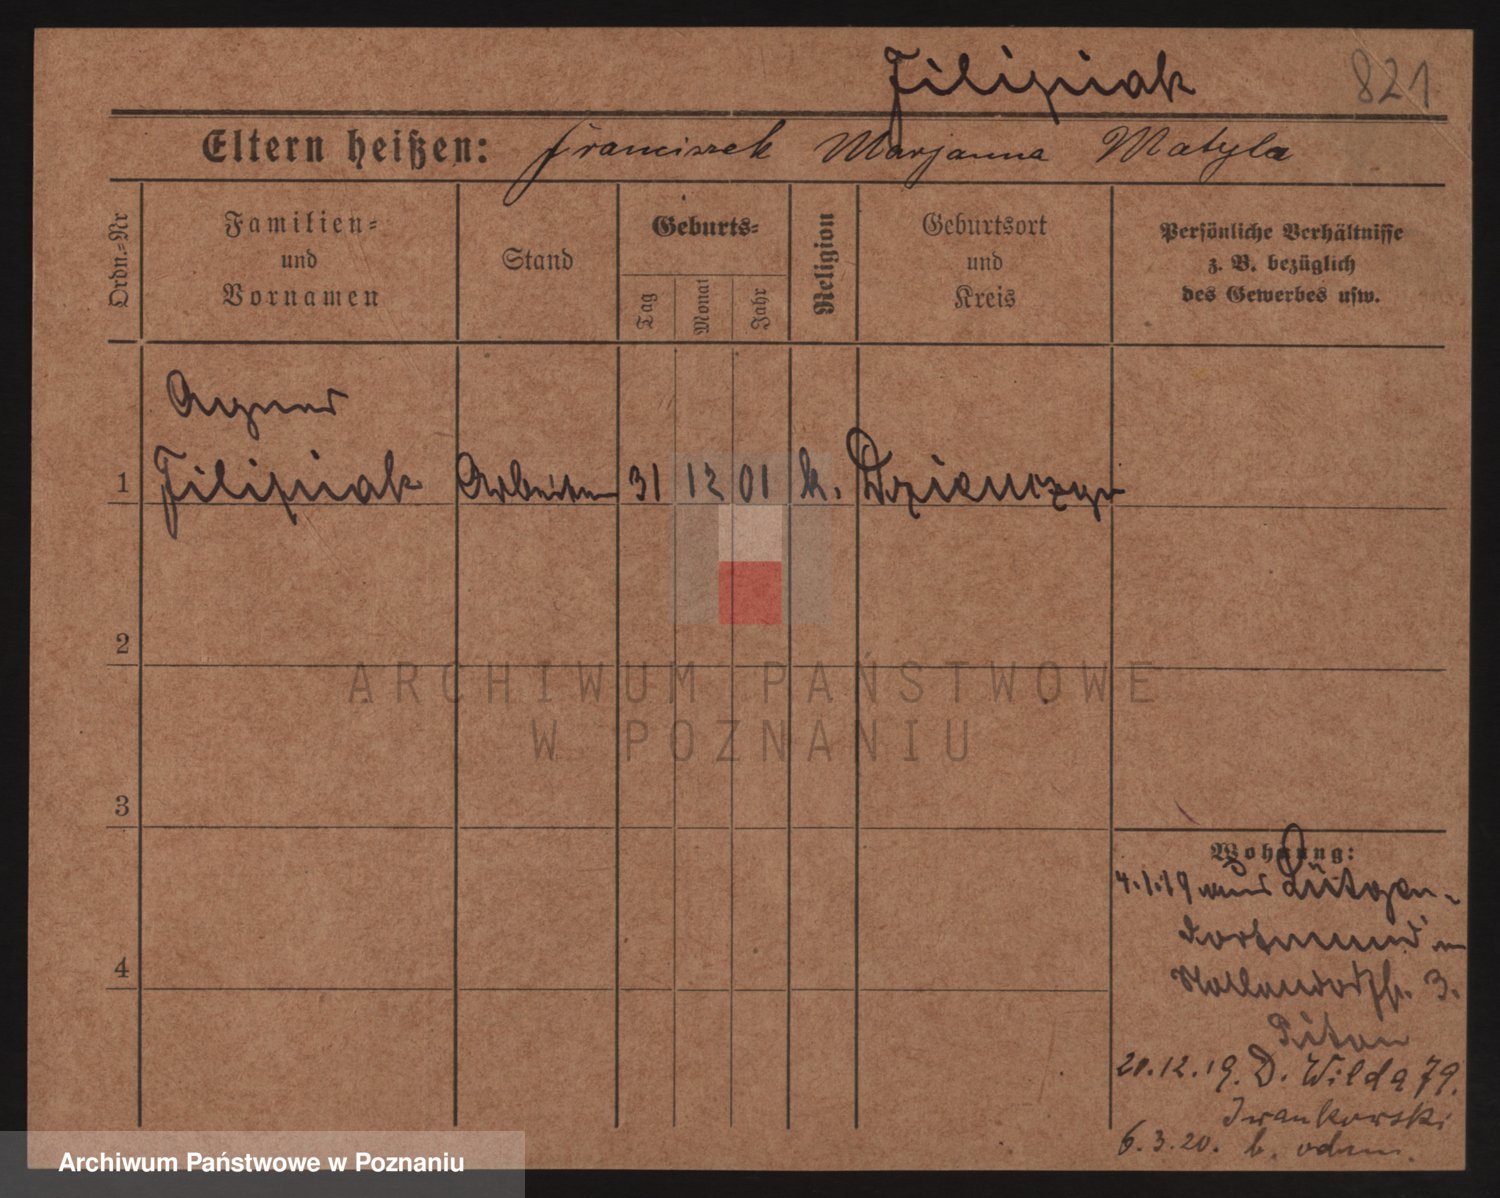 Filipiak 821
Eltern heißen: Franciszek Marjanna Matyla
Ordn.=Nr
Familien=
und
Vornamen
Stand
Geburts=
Tag
Monat
Jahr
Religion
Geburtsort
und
Kreis
Persönliche Verhältnisse
z. B. bezüglich
des Gewerbes usw.
Agnes
1 Filipiak Arbeiterin 31 12 01 k.
2
3
4
Wohnung:
4.1.19 aus Lütgen-
dortmund
3.
20.12.19. D. Wilda 79.
Iwankowski
6.3.20. b. odm.
ARCHIWUM PAŃSTWOWE
W POZNANIU
Archiwum Państwowe w Poznaniu